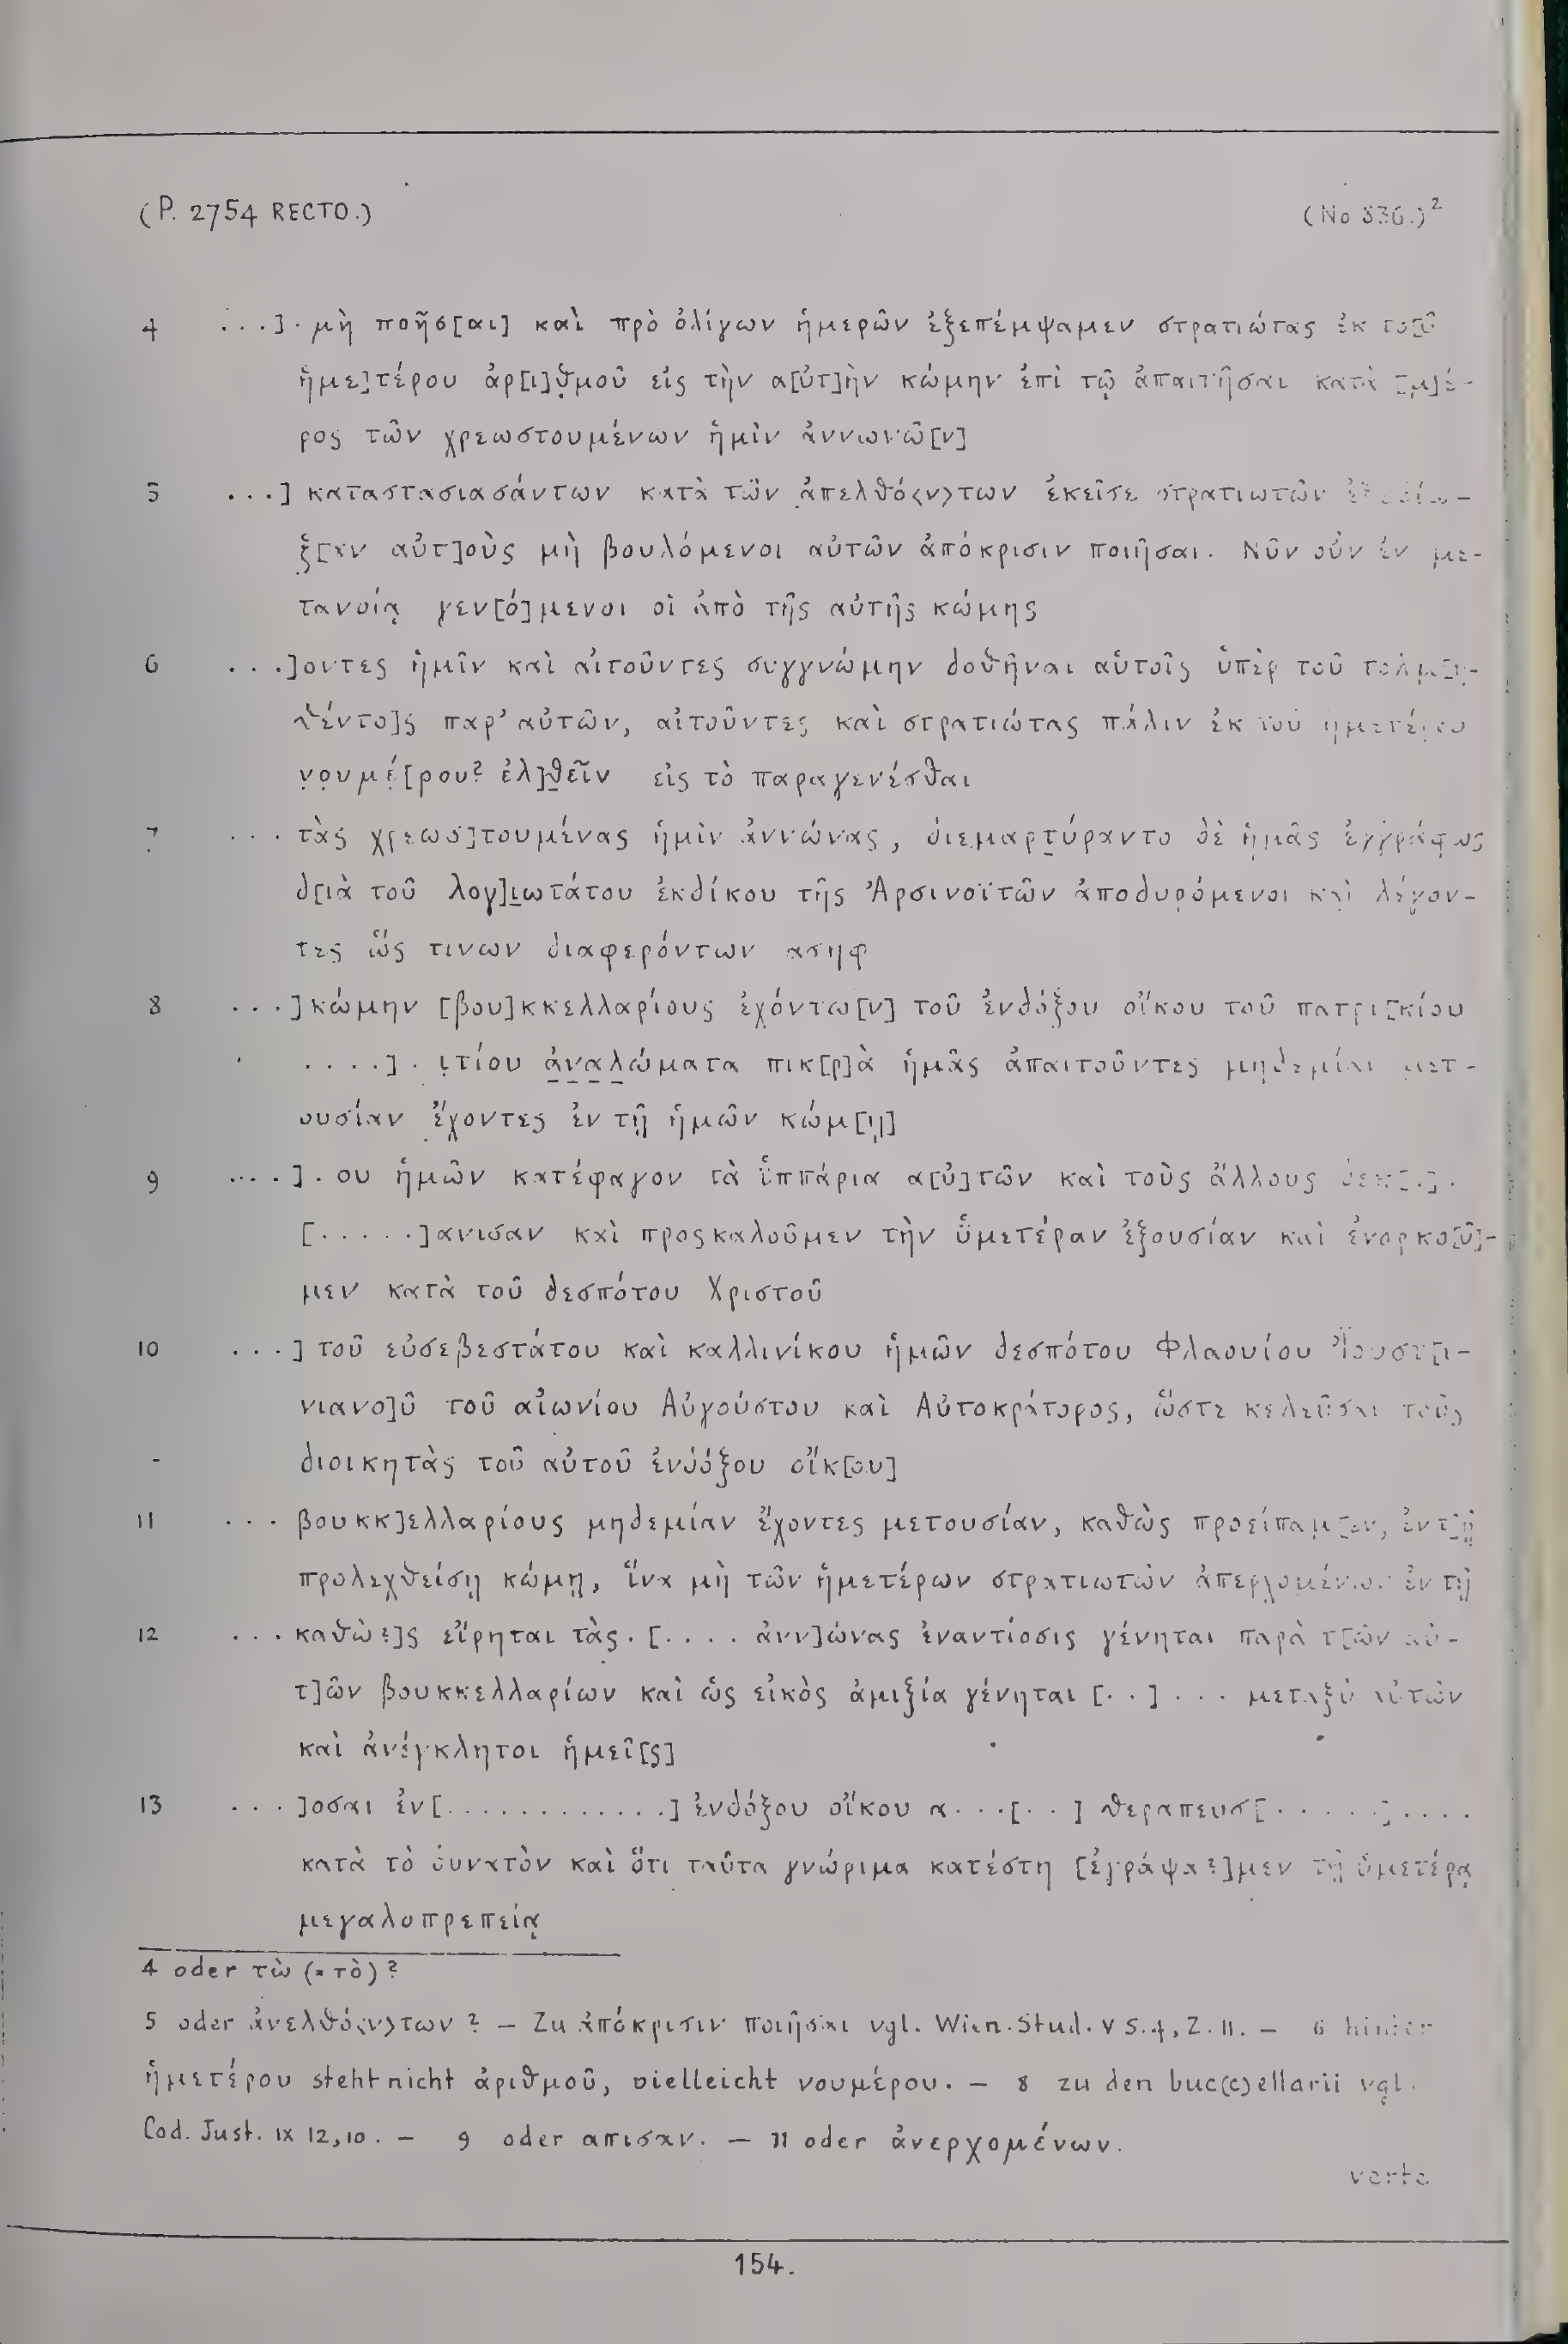 (P. 2754 RECTO.) (No 836.)²
4 ...]. μὴ ποῆσ[αι] καὶ πρὸ ὀλίγων ἡμερῶν ἐξεπέμψαμεν στρατιώτας ἐκ το[ῦ
ἡμε]τέρου ἀρ[ι]θ̣μοῦ εἰς τὴν α[ὐτ]ὴν κώμην ἐπὶ τῷ ἀπαιτῆσαι κατὰ [μ]έ-
ρος τῶν χρεωστουμένων ἡμῖν ἀννωνῶ[ν]
5 ...] καταστασιασάντων κατὰ τῶν ἀπελθό<ν>των ἐκεῖσε στρατιωτῶν
ξ̣[αν αὐτ]οὺς μὴ βουλόμενοι αὐτῶν ἀπόκρισιν ποιῆσαι. Νῦν οὖν ἐν με-
τανοίᾳ γεν[ό]μενοι οἱ ἀπὸ τῆς αὐτῆς κώμης
6 ...]οντες ἡμῖν καὶ αἰτοῦντες συγγνώμην δοθῆναι αὐτοῖς ὑπὲρ του τολμ[η-
θέντο]ς παρ' αὐτῶν, αἰτοῦντες καὶ στρατιώτας πάλιν ἐκ τοῦ ἡμετέρου
ν̣ο̣υμέ̣[ρου? ἐλ]θ̲εῖν εἰς τὸ παραγενέσθαι
7 ... τὰς χρεωσ]τουμένας ἡμῖν ἀννώνας, διεμαρτ̲ύραντο δὲ ἡμᾶς ἐγγράφως
δ[ιὰ τοῦ λογ]ι̲ωτάτου ἐκδίκου τῆς Ἀρσινοϊτῶν ἀποδυρόμενοι καὶ λέγον-
τες ὥς τινων διαφερόντων ασηφ
8 ...]κώμην [βου]κκελλαρίους ἐχόντω[ν] τοῦ ἐνδόξου οἴκου τοῦ πατρι[κίου
....]. ι̣τίου ἀ̲ν̲α̲λ̲ώματα πικ[ρ]ὰ ἡμᾶς ἀπαιτοῦντες μηδεμίαν μετ-
ουσίαν ἔχοντες ἐν τῇ ἡμῶν κώμ[ῃ]
9 ....]. ου ἡμῶν κατέφαγον τὰ ἱ̈ππάρια α[ὐ]τῶν καὶ τοὺς ἄλλους δεκ[.].
[.....]ανισαν καὶ προςκαλοῦμεν τὴν ὑ̈μετέραν ἐξουσίαν καὶ ἐνορκο[ῦ]-
μεν κατὰ τοῦ δεσπότου Χριστοῦ
10 ...] τοῦ εὐσεβεστάτου καὶ καλλινίκου ἡμῶν δεσπότου Φλαουίου Ἰ̈ουστ[ι-
νιανο]ῦ τοῦ αἰωνίου Αὐγούστου καὶ Αὐτοκράτορος, ὥστε κελεῦσαι τοὺς
διοικητὰς τοῦ αὐτοῦ ἐνδόξου οἴκ[ου]
11 ... βουκκ]ελλαρίους μηδεμίαν ἔχοντες μετουσίαν, καθὼς προείπαμ[εν, ἐν τ]ῇ
προλεχθείσῃ κώμῃ, ἵνα μὴ τῶν ἡμετέρων στρατιωτῶν ἀπερχομένων ἐν τῇ
12 ... καθὼ?]ς εἴρηται τὰς. [.... ἀνν]ώνας ἐναντίοσις γένηται παρὰ τ[ῶν αὐ-
τ]ῶν βουκκελλαρίων καὶ ὡς εἰκὸς ἀμιξία γένηται [..] ... μεταξὺ αὐτῶν
καὶ ἀνέγκλητοι ἡμεῖ[ς]
13 ...]οσαι ἐν[............] ἐνδόξου οἴκου α...[..] θεραπευσ[.....]....
κατὰ τὸ δυνατὸν καὶ ὅτι ταῦτα γνώριμα κατέστη [ἐγράψα?]μεν τῇ ὑμετέρᾳ
μεγαλοπρεπείᾳ
4 oder τὼ (= τὸ)?
5 oder ἀνελθό<ν>των? – Zu ἀπόκρισιν ποιῆσαι vgl. Wien. Stud. V S. 4, Z. 11. – 6 hinter
ἡμετέρου steht nicht ἀριθμοῦ, vielleicht νουμέρου. – 8 zu den buc(c)ellarii vgl.
Cod. Just. IX 12,10. – 9 oder απισαν. – 11 oder ἀνερχομένων.
verte
154.